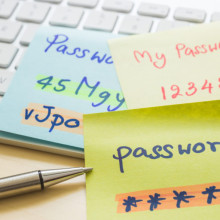 Password
45Mgy
vJpo
My Passw
12345
passwor
*****